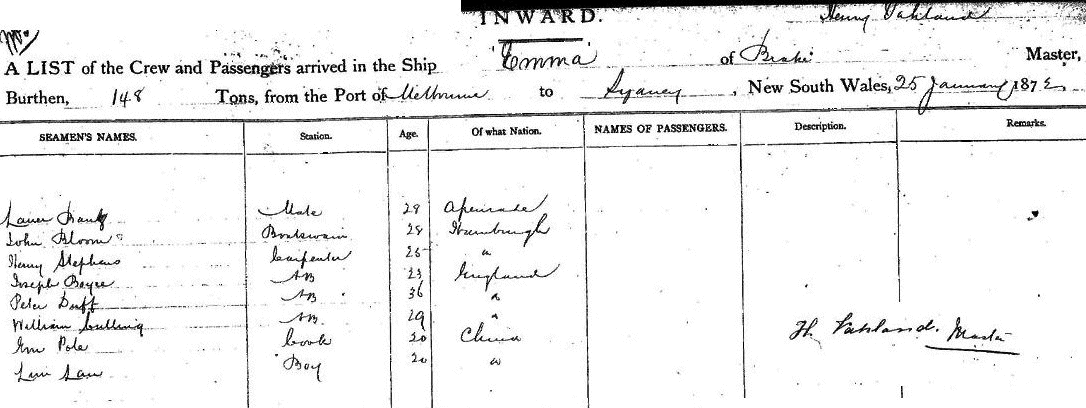 INWARD.
Henry
A LIST of the Crew and Passengers arrived in the Ship "Emma" of Brake Master,
Burthen, 148 Tons, from the Port of Melbourne to Sydney, New South Wales, 25 January 1872
SEAMEN'S NAMES. Station. Age. Of what Nation. NAMES OF PASSENGERS. Description. Remarks.
Mate 28 Apenrade
John Bloom Boatswain 28 Hamburgh
Henry Stephens Carpenter 25 "
Joseph Boyce AB 23 England
Peter Duff AB 36 "
William AB 29 "
Pole Cook 20 China
Boy 20 "
H. Master